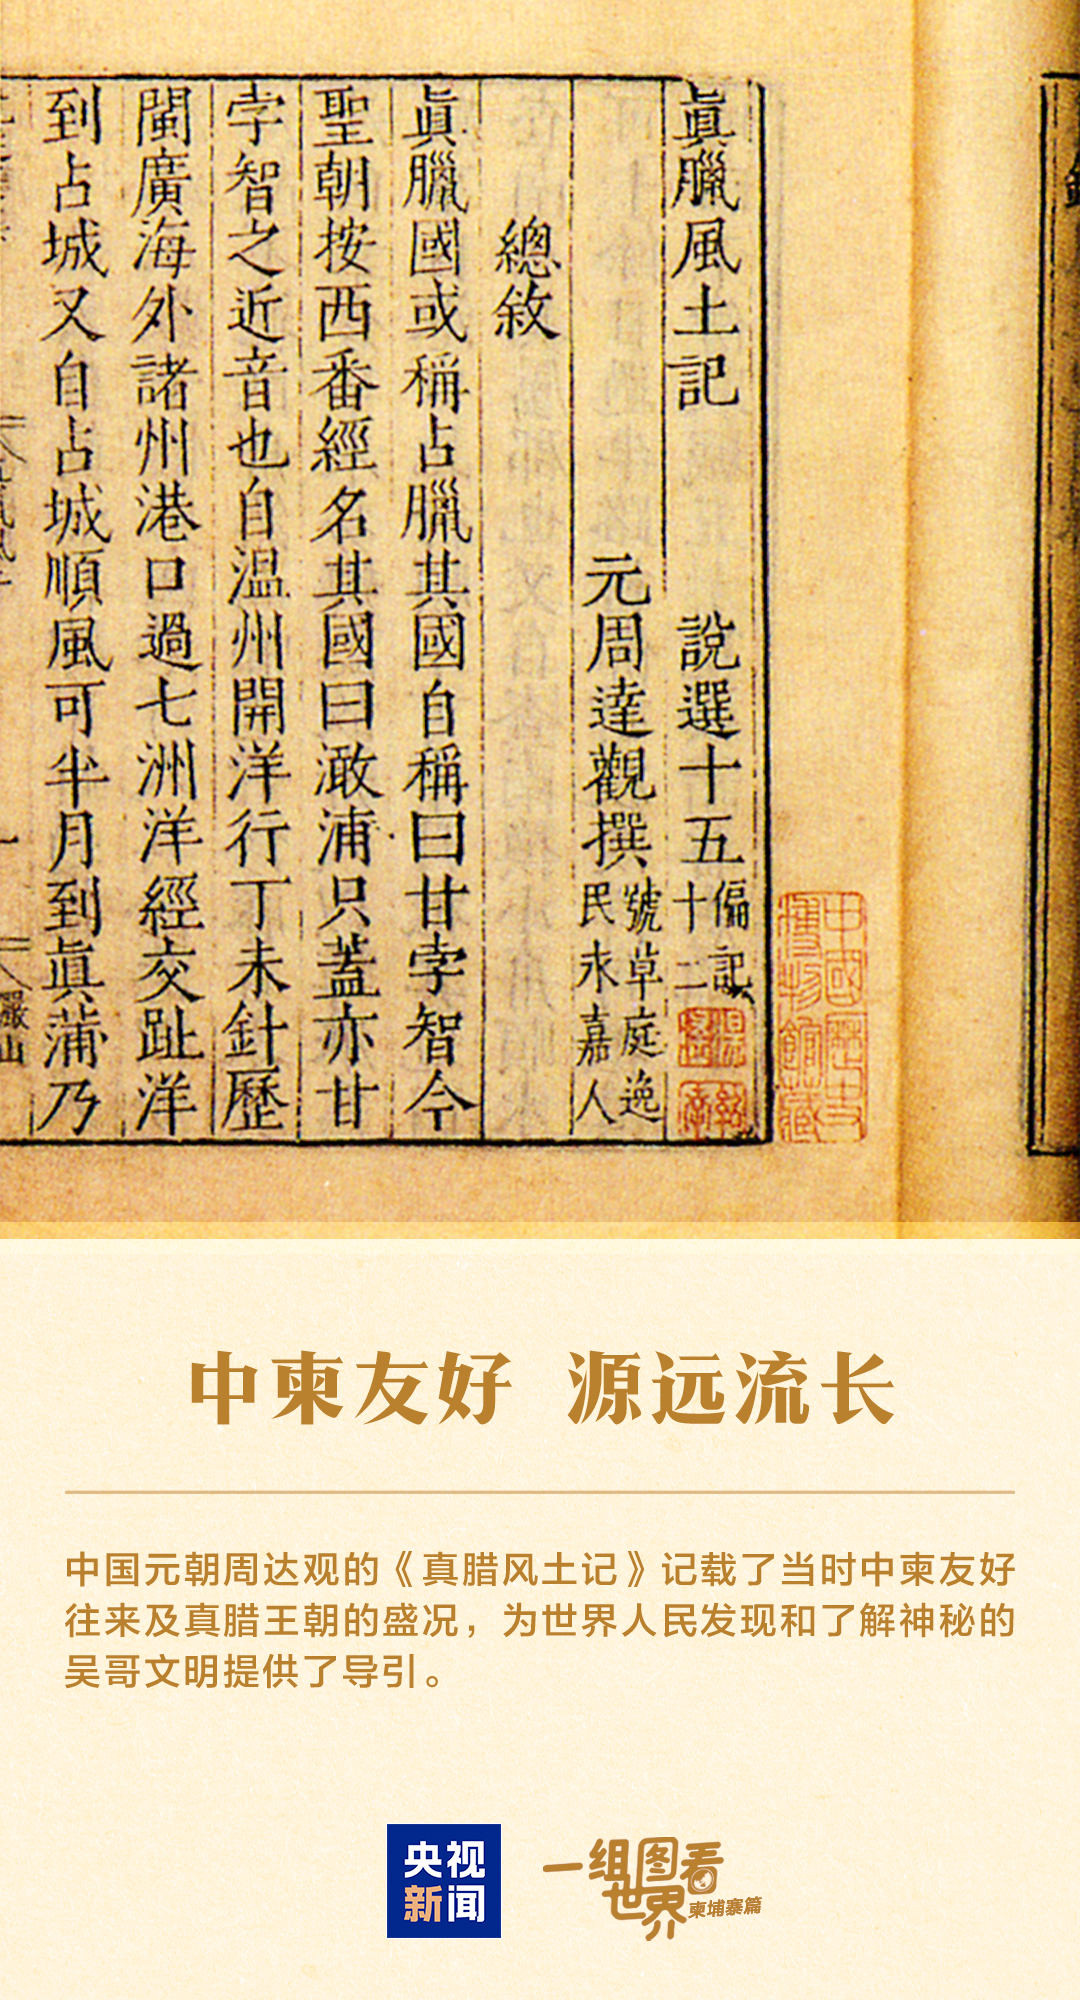 眞臘風土記
說選十五
偏記
十二
元周達觀撰
號草庭逸
民永嘉人
總敘
眞臘國或稱占臘其國自稱曰甘孛智今
聖朝按西番經名其國曰澉浦只蓋亦甘
孛智之近音也自温州開洋行丁未針歷
閩廣海外諸州港口過七洲洋經交趾洋
到占城又自占城順風可半月到眞蒲乃
中國歷史
博物館藏
中柬友好 源远流长
中国元朝周达观的《真腊风土记》记载了当时中柬友好
往来及真腊王朝的盛况，为世界人民发现和了解神秘的
吴哥文明提供了导引。
央视
新闻
一组图看
世界
柬埔寨篇